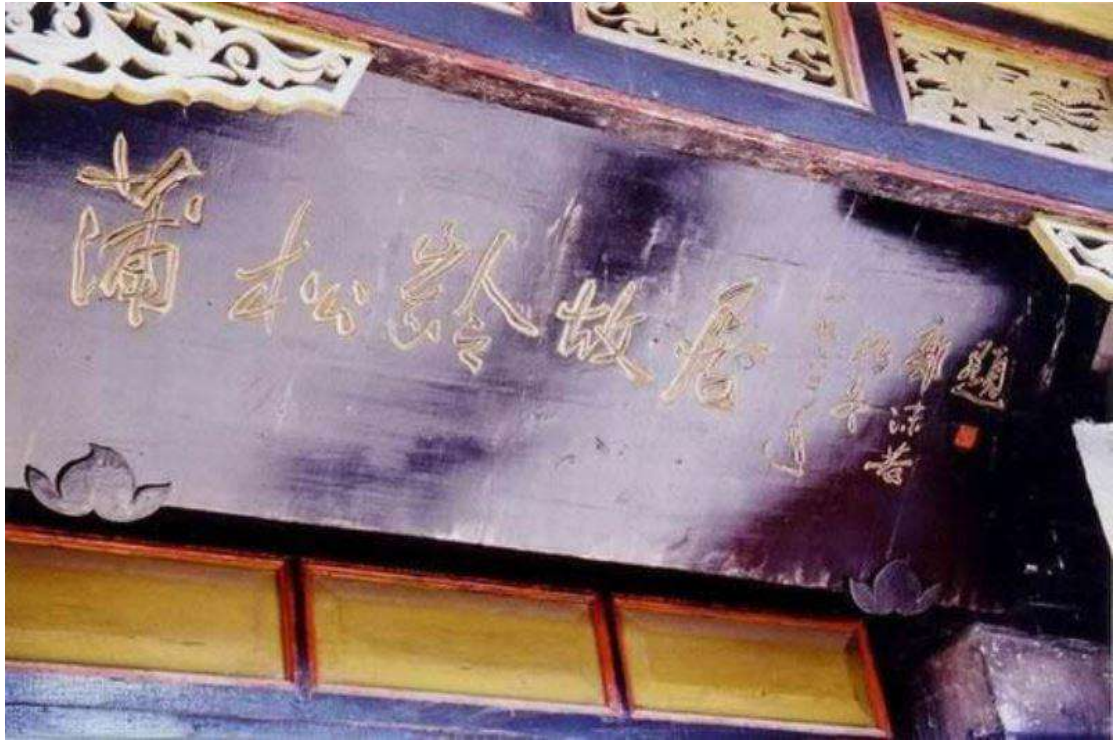 蒲松龄故居
郭沫若
題